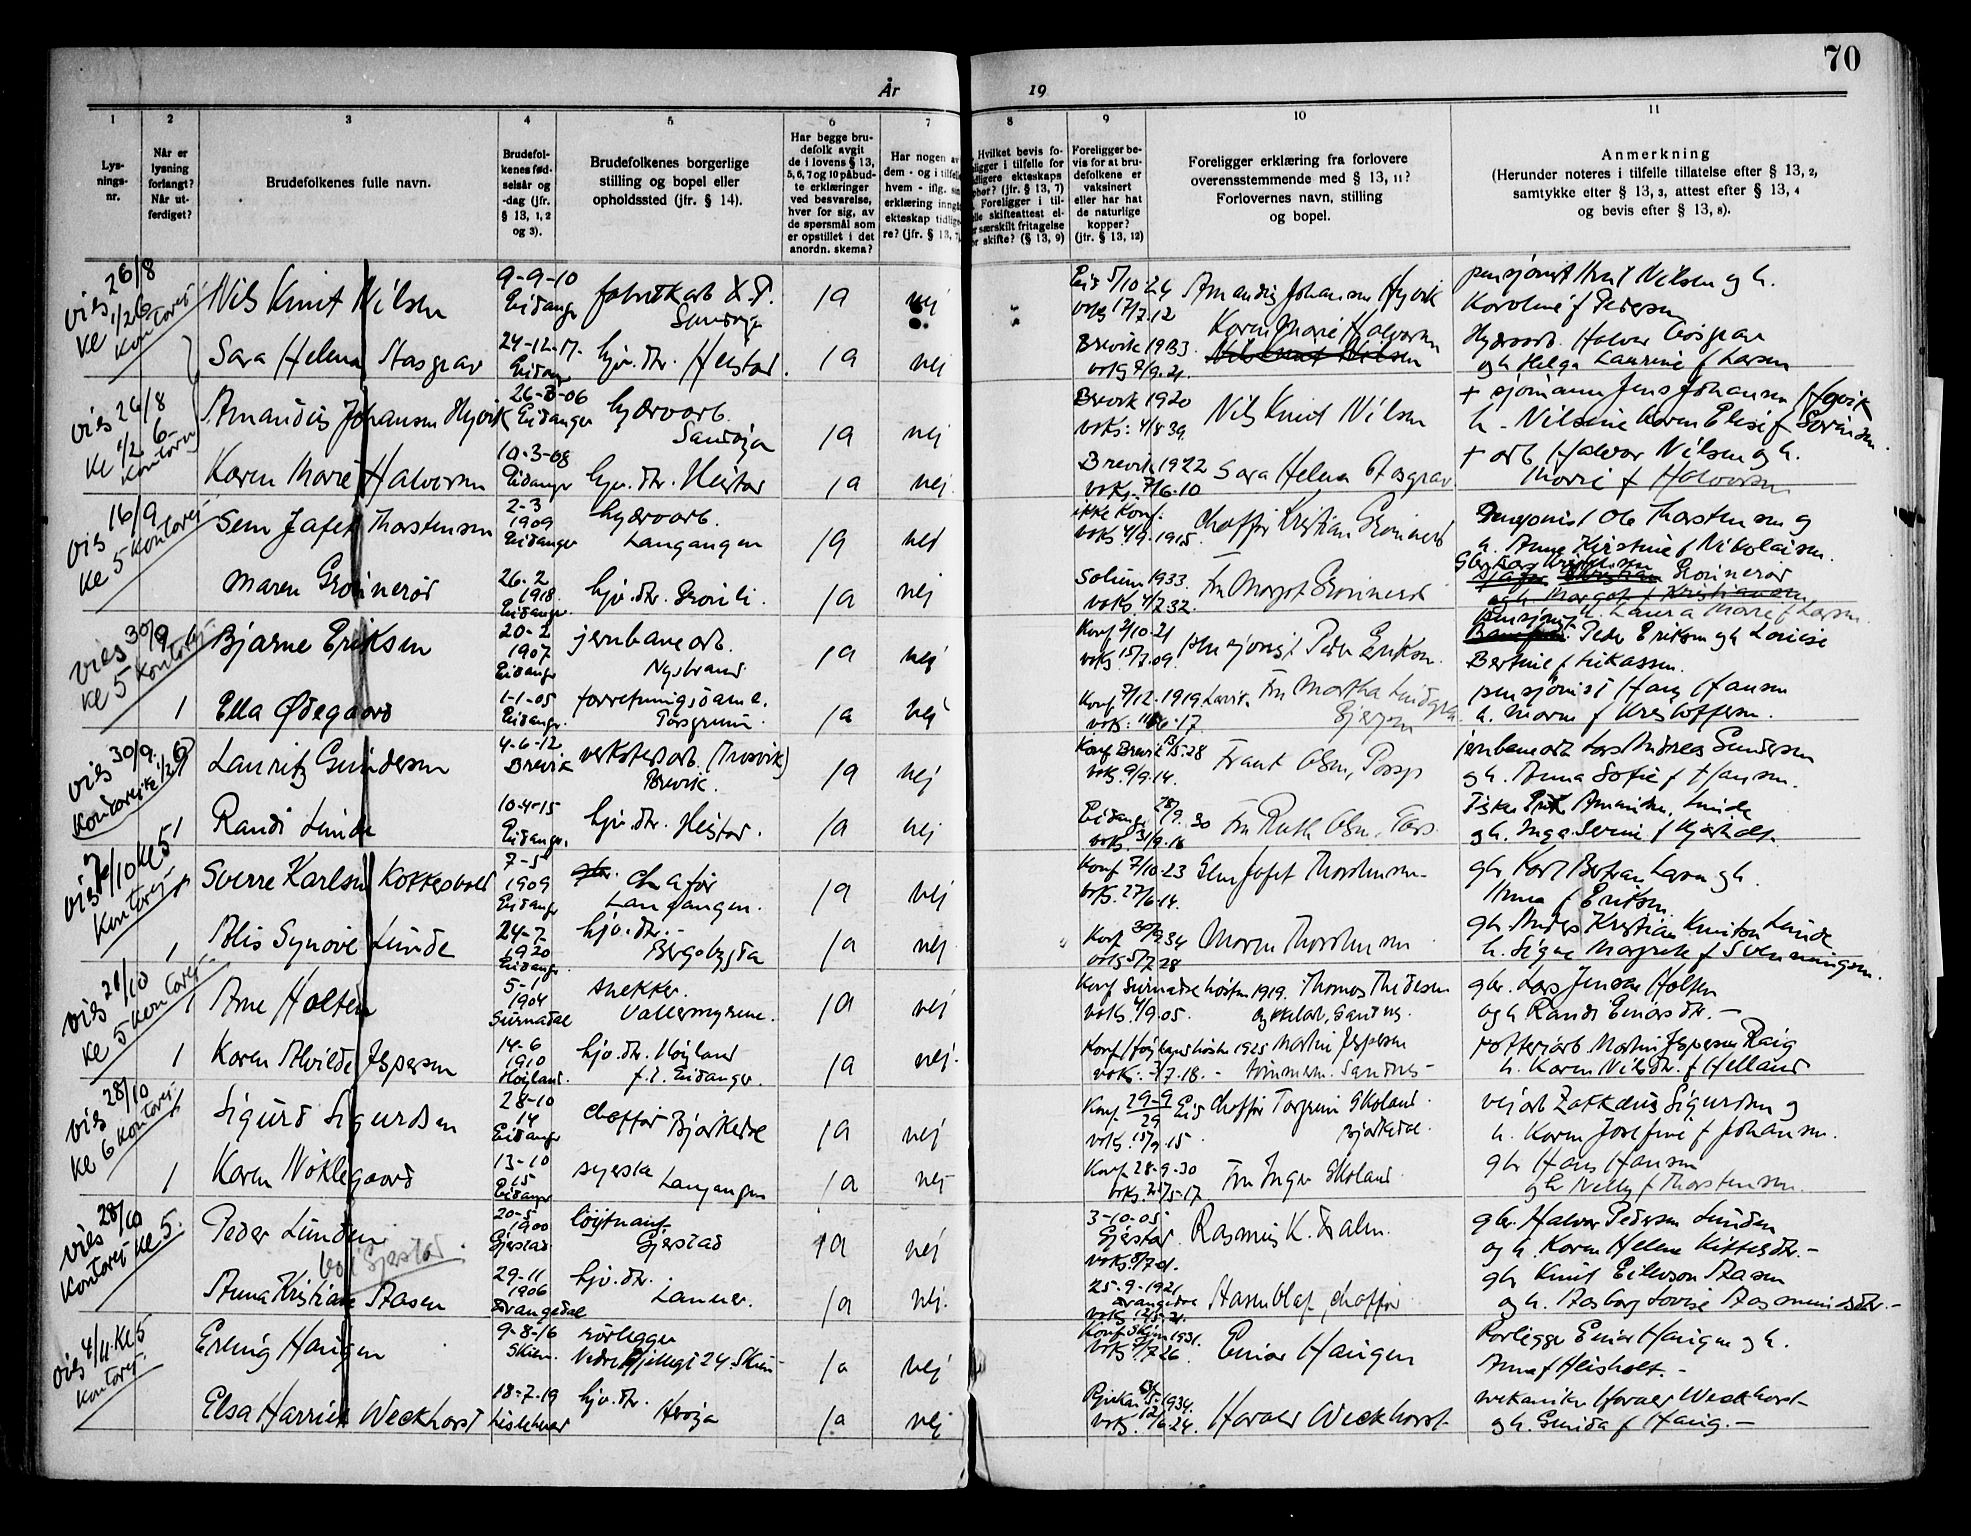 70
År 19
1 2 3 4 5 6 7 8 9 10 11
Lys-
nings-
nr.
Når er
lysning
forlangt?
Når ut-
ferdiget?
Brudefolkenes fulle navn.
Brudefol-
kenes fød-
selsår og
-dag (jfr.
§ 13, 1, 2
og 3).
Brudefolkenes borgerlige
stilling og bopel eller
opholdssted (jfr. § 14).
Har begge bru-
defolk avgit
de i lovens § 13,
5, 6, 7 og 10 påbud-
te erklæringer
ved besvarelse,
hver for sig, av
de spørsmål som
er opstillet i det
anordn. skema?
Har nogen av
dem - og i tilfelle
hvem - iflg. sin
erklæring inngt
ekteskap tidlige-
re? (jfr. § 13, 7
Hvilket bevis fo-
ligger i tilfelle for
dligere ekteskaps
phør? (jfr. § 13, 7)
Foreligger i til-
lle skifteattest el-
r særskilt fritagelse
or skifte? (§ 13, 9)
Foreligger be-
vis for at bru-
defolkene er
vaksinert
eller har hat
de naturlige
kopper?
(jfr. § 13, 12)
Foreligger erklæring fra forlovere
overensstemmende med § 13, 11?
Forlovernes navn, stilling
og bopel.
Anmerkning
(Herunder noteres i tilfelle tillatelse efter § 13, 2,
samtykke efter § 13, 3, attest efter § 13, 4
og bevis efter § 13, 8).
vies 26/8 ke 1/2 6 kontoret
Nils Knut Nilsen 9-9-10 Eidanger fabrikkarb Sandøja ja nej Eid 5/10 24 voks 17/7.12 Amandus Johansen Hyvik pensjonist Knut Nilsen og h. Karoline f Pedersen
Sara Helena Stosgrav 24-12-17. Eidanger hjv. dtr. Heistad. ja nej Brevik 1933. Karen Marie Halvorsen Hydroarb. Halvor Stosgrav og h. Helga Laurine f Larsen
vies 26/8 ke 1/2 6- kontoret
Amandus Johansen Hyvik 26-3-06 Eidanger hydroarb. Sandøja ja nej Brevik 1920 voks: 4/8 39. Nils Knut Nilsen + sjømann Jens Johansen Hyvik h. Nilsine Karen Elise f Sørensen
Karen Marie Halvorsen 10-3-08 Eidanger hjv. dtr. Heistad ja nej. Brevik 1922 voks. 7/6.10 Sara Helena Stosgrav + arb Halvor Nilsen og h. Marie f Halvorsen
vies 16/9 ke 5 kontoret
Sem Jafet Thorstensen 2-3 1909 Eidanger hydroarb. Langangen ja nei ikke konf. voks 4/9.1915. Chaffør Kristian Grønnerød Pensjonist Ole Thorstensen og h. Anna Kirstine f Nikolaisen.
Maren Grønnerød 26.2 1918. Eidanger hjv. dtr. Grønli. ja nej Solum 1933. voks 4/7 32. Fru Margot Grønnerød Grønnerød og h. Margot f Kristiansen h. Laura Marie f Larsen
vies 30/9 ke 5 kontoret
Bjarne Eriksen 20-2 1907 Eidanger jernbanearb. Nystrand ja nej Konf 2/10.21 voks 15/7.09. pensjonist Peder Eriksen. Pensjonist Peder Eriksen og h Lovise Bertine f Lukassen.
1 Ella Ødegaard 1-1-05 Eidanger. forretningsdame. Porsgrunn. ja nej Konf 7/12.1919 Fru Martha pensjonist Hans Hansen h. Maren f Kristoffersen.
vies 30/9. kontoret ke. 1/2 6
Lauritz Gundersen 4-6-12. Brevik verkstedarb. (Trosvik) Brevik. ja nej Konf Brevik 28 voks. 9/9.14. Frank Olsen, Porsgr jernbanearb Lars Andreas Gundersen og h. Anna Sofie f Hansen.
1 Randi Lunde 10-4-15 Eidanger. hjv. dtr. Heistad. ja nej Eidanger 28/9.30 voks. 31/9.18 Fru Ruth Olsen, Pors. Fisker Amandus Lunde og h. Inga Severine f Kjørholt
vies 7/10 ke 5 kontoret
Sverre Karlsen Kokkersvold 7-5 1909 Eidanger chafør Langangen. ja nej Konf 7/10-23 voks. 27/6.14. Sem Jafet Thorstensen gbr. Karl Bertran Larsen og h. Anna f Eriksen
1 Alis Synøve Lunde 24-2 1920 Eidanger hjv. dtr.- Bergsbygda ja nej Konf 30/9 34 voks 5/7 28 Maren Thorstensen gbr. Anders Kristian Knutsen Lunde h. Signe Margrete f Svenningsen.
vies 21/10 ke 5 kontoret.
1 Arne Holten 5-10 1904 Surnadal snekker. Vallermyrene. ja nej Konf Surnadal høsten 1919. voks. 4/9.05. Thomas Thidesen gbr. Lars Jensen Holten og h Randi Einarsdtr.-
1 Karen Alvilde Jespersen 14-6 1910 Høyland. hjv. dtr. Høyland f. t. Eidanger. ja nej. Konf Høyland høsten 1925 voks. 3/7.18.- Martin Jespersen tømmerm. Sandnes- potteriarb Martin Jespersen Raig h. Karen Nilsdtr. f Helland
vies 28/10 ke 6 kontoret
Sigurd Sigurdsen 28-10 14 Eidanger chaffør Bjørkedal ja nej Konf 29-9 29 Eid voks. 15/9.15. Chaffør Torgrim Skoland. Bjørkedal. veiarb Zakkæus Sigurdsen og h. Karen Josefine f Johansen.
1 Karen Nøklegaard 13-10 15 Eidanger syerske Langangen ja nej Konf 28-9-30 voks. 5-17 Fru Inger Skoland. gbr Hans Hansen og h Nelly f Thorstensen.
vies 28/10 kontoret ke 5.
Peder Lunden bor Gjerstad. 20-5 1900 Gjerstad løjtnant Gjerstad ja nej 3-10-05 Gjerstad. voks. 8/7 01. Rasmus K. Dalen. gbr. Halvor Pedersen Lunden og h. Karen Helene Kittelsdtr.-
Anna Kristiane Aasen 29-11 1906 Drangedal hjv. dtr. Lanner. ja nej. 25.9-1921 Drangedal Aasen Olaf, chaffør gbr Knut Eilevson Aasen og h. Aasborg Lovise Aasmundsdtr.-
vies 4/11. ke 5 kontoret.
Erling Haugen 9-8-16 Skien. rørlegger Nedre Hjellegt 24. Skien- ja nej Konf Skien 1931. voks 7/7 26 Einar Haugen Rørlegger Einar Haugen og h. Anna f Heisholt.-
Elsa Harriet Weckhorst 18-7-19 Lillehamer hjv. dtr. Herøja ja nej Rjukan 1934. voks. 12/6.24. Harald Weckhorst mekaniker Harald Weckhorst og h. Gunda f Haug.-